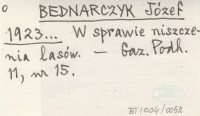 o BEDNARCZYK Józef
1923... W sprawie niszcze-
nia lasów. — Gaz. Podh.
11, nr 15.
BT/004/0052